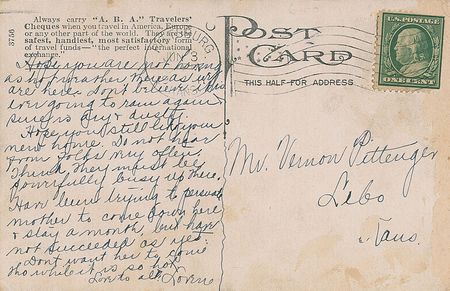 3756
Always carry "A. B. A." Travelers'
Cheques when you travel in America, Europe
or any other part of the world. They are the
safest, handiest, most satisfactory form
of travel funds—"the perfect international
exchange."
POST CARD
THIS HALF FOR ADDRESS
U.S. POSTAGE
ONE CENT
Hope you are not having
as hot weather there as we
are here. Don't believe it is
ever going to rain again
sure is dry & dusty.
Hope you still like your
new home. Do not hear
from folks very often
Think they must be
powerfully busy up there.
Have been trying to persuade
mother to come down here
& stay a month, but have
not succeeded as yet.
Dont want her to come
tho while it is so hot.
Love to all,
Mr. Vernon Pittenger
Lebo
Kans.